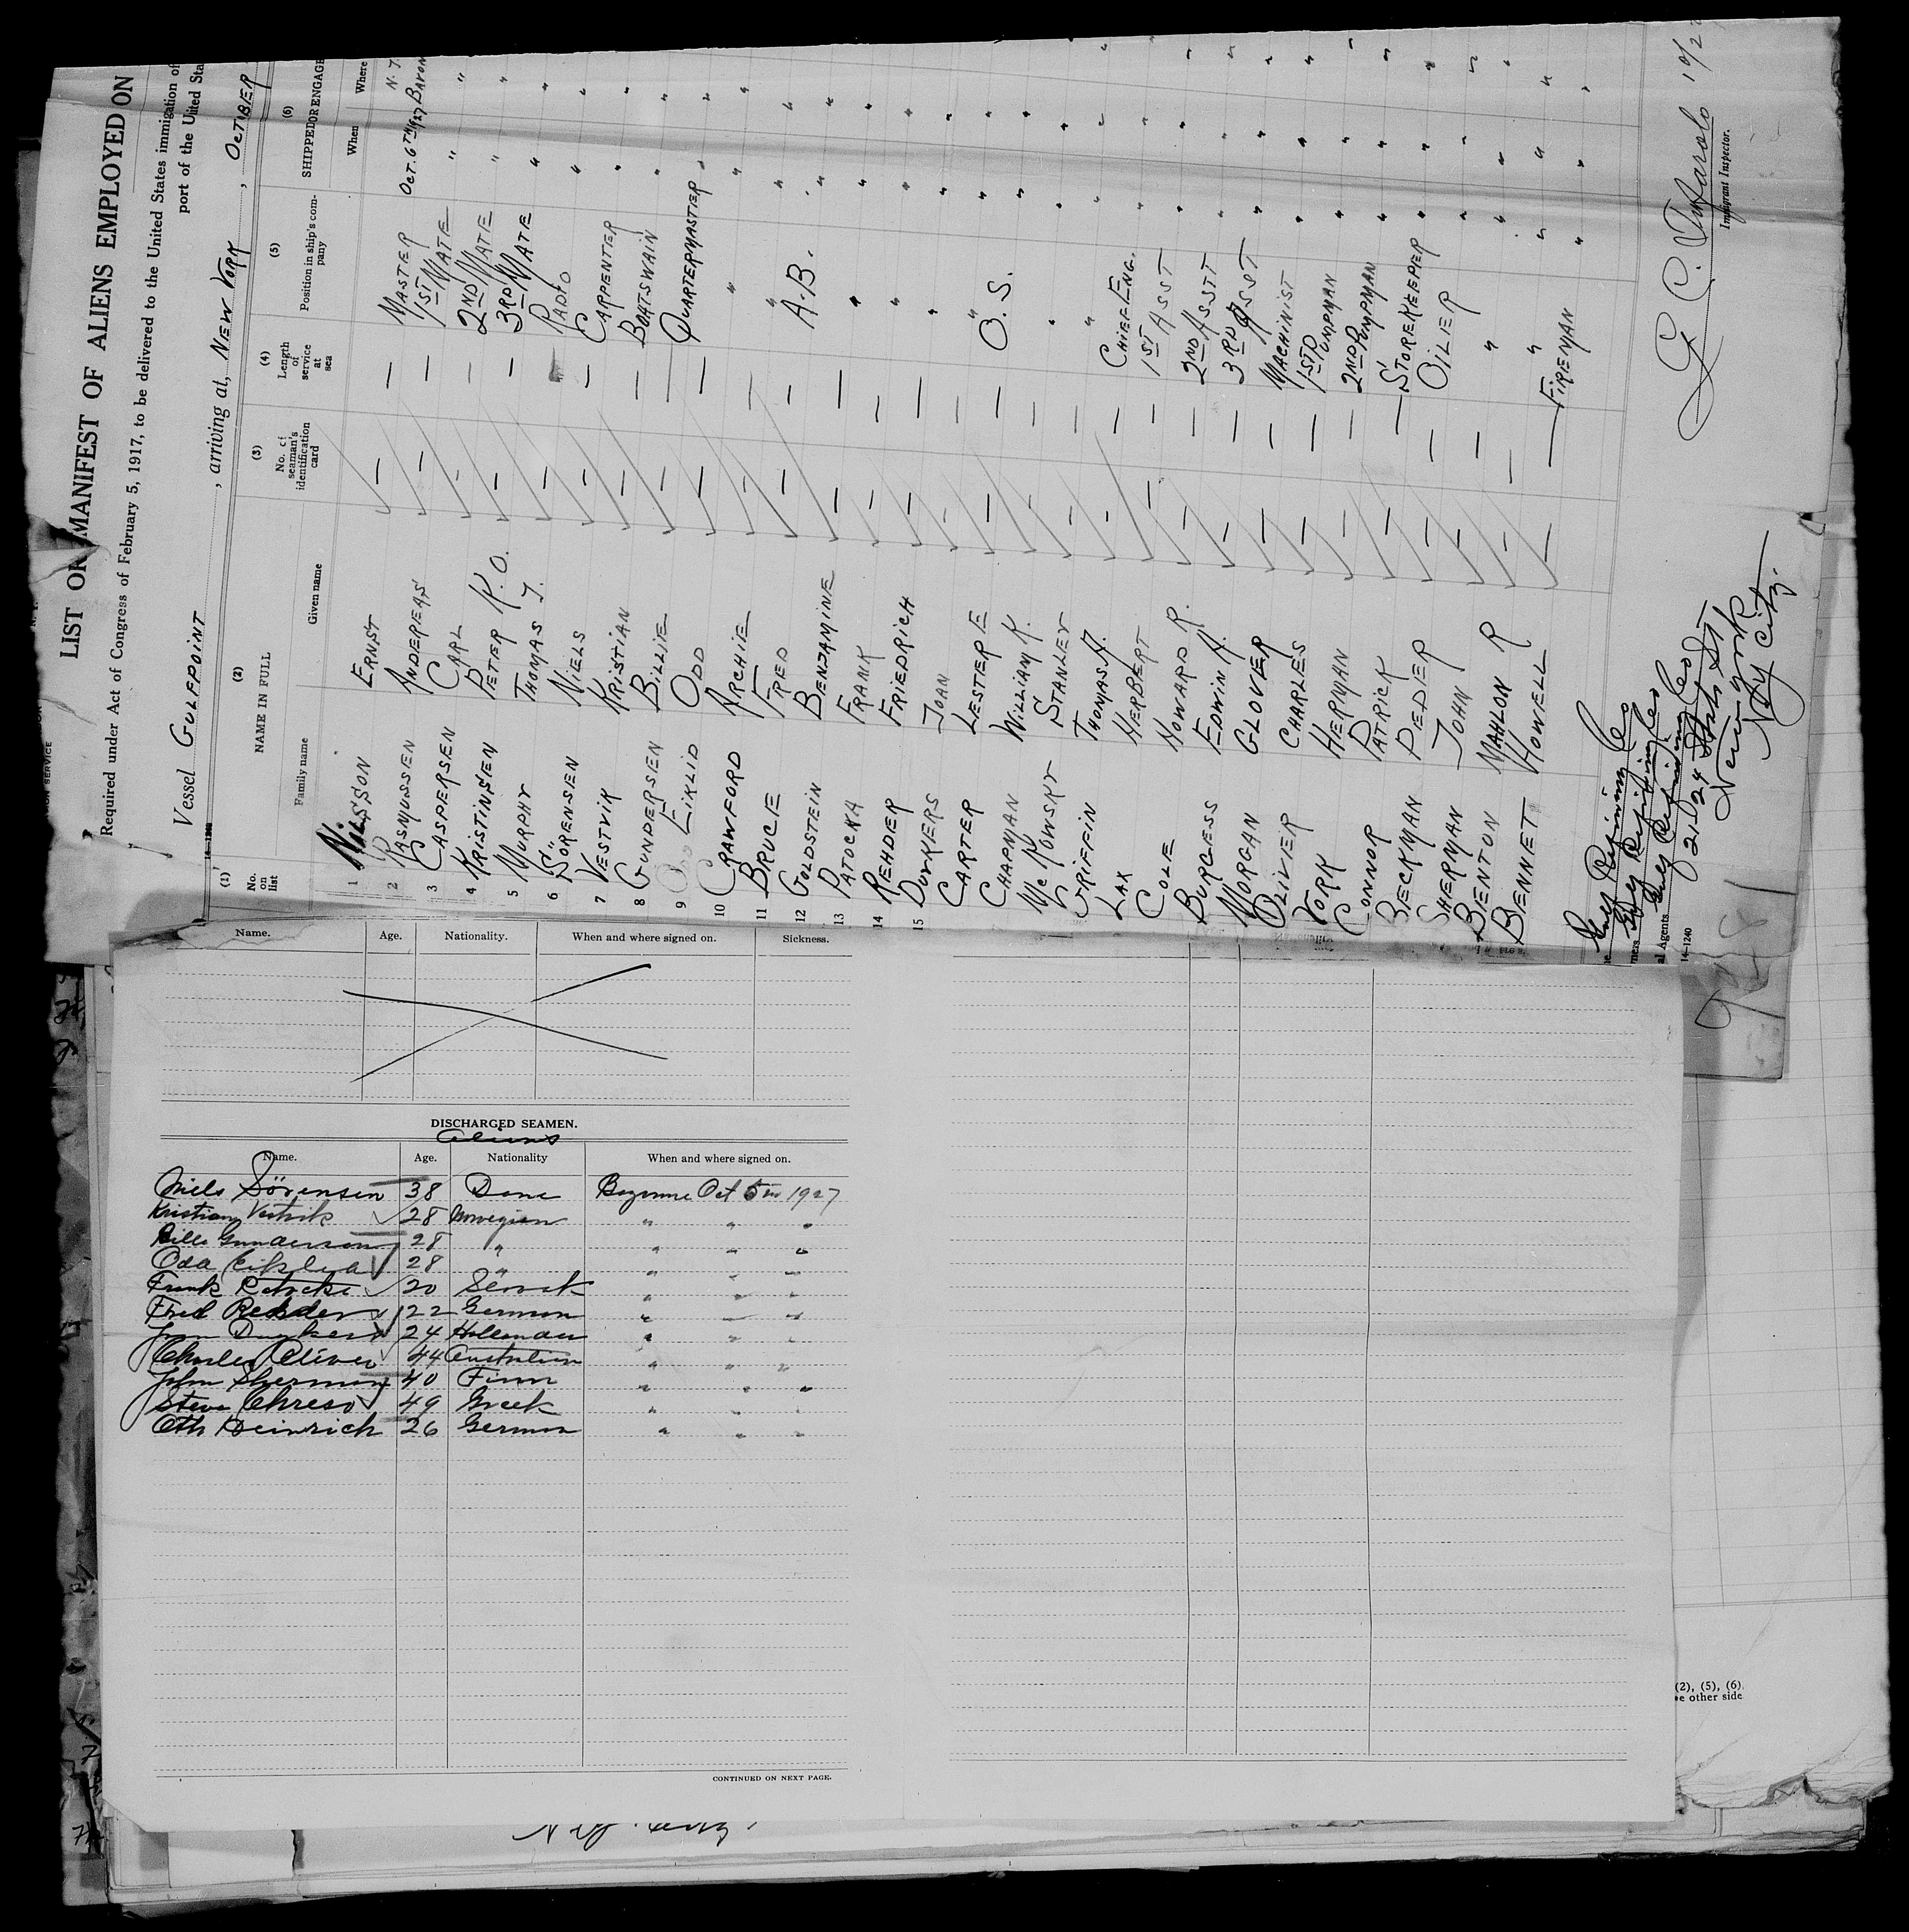 LIST OR MANIFEST OF ALIENS EMPLOYED ON
Required under Act of Congress of February 5, 1917, to be delivered to the United States immigration of
port of the United Sta
Vessel GULFPOINT, arriving at, NEW YORK, OCTOBER
14-1240
(1) (2) (3) (4) (5) (6)
No. on list NAME IN FULL No. of seaman's identification card Length of service at sea Position in ship's company SHIPPED OR ENGAGE
Family name Given name When Where
1 NILSSON ERNST — — MASTER OCT. 6TH 1927 BAYON N.J.
2 RASMUSSEN ANDEREAS — — 1ST MATE " "
3 CASPERSEN CARL — — 2ND MATE " "
4 KRISTINSEN PETER K.O. — — 3RD MATE " "
5 MURPHY THOMAS J. — RADIO " "
6 SÖRENSEN NIELS — — CARPENTER " "
7 VESTVIK KRISTIAN — — BOATSWAIN " "
8 GUNDERSEN BILLIE — — QUARTERMASTER " "
9 EIKLID ODD — — " " "
10 CRAWFORD ARCHIE — — " " "
11 BRUCE FRED — — A.B. " "
12 GOLDSTEIN BENJAMINE — — " " "
13 PATOCKA FRANK — — " " "
14 REHDER FRIEDRICH — — " " "
15 DUYKERS JOAN — — " " "
CARTER LESTER E — — O.S. " "
CHAPMAN WILLIAM K. — — " " "
McKOWSKY STANLEY — — " " "
GRIFFIN THOMAS A. — — CHIEF ENG. " "
LAX HERBERT — — 1ST ASST " "
COLE HOWARD R. — — 2ND ASST " "
BURGESS EDWIN A. — — 3RD ASST " "
MORGAN GLOVER — — MACHINIST " "
OLIVER CHARLES — — 1ST PUMPMAN " "
YORK HERMAN — — 2ND PUMPMAN " "
CONNOR PATRICK — — STOREKEEPER " "
BECKMAN PEDER — — OILER " "
SHERMAN JOHN — — " " "
BENTON MAHLON R — — " " "
BENNET HOWELL — — FIREMAN " "
Gulf Refining Co
ners Gulf Refining Co
al Agents Gulf Refining Co
21-24 State ST
New York
N.Y City.
14-1240
Immigrant Inspector.
Name. Age. Nationality. When and where signed on. Sickness.
DISCHARGED SEAMEN.
Aliens
Name. Age. Nationality When and where signed on.
Niels Sörensen 38 Dane Bayonne Oct 5th 1927
Kristian Vestvik 28 Norwegian " " "
Bille Gundersen 28 " " " "
Odd Eiklid 28 " " " "
Frank Patocka 20 Slovak " " "
Fred Rehder 22 German " " "
Joan Duykers 24 Hollander " " "
Charles Oliver 44 Australian " " "
John Sherman 40 Finn " " "
Steve Chreso 49 Greek " " "
Otto Heinrich 26 German " " "
CONTINUED ON NEXT PAGE.
(2), (5), (6)
e other side